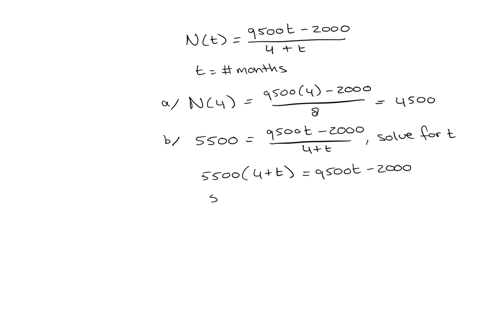 N(t) = (9500t - 2000)/(4 + t)
t = # months
a/ N(4) = (9500(4) - 2000)/8 = 4500
b/ 5500 = (9500t - 2000)/(4+t), solve for t
5500(4+t) = 9500t - 2000
5